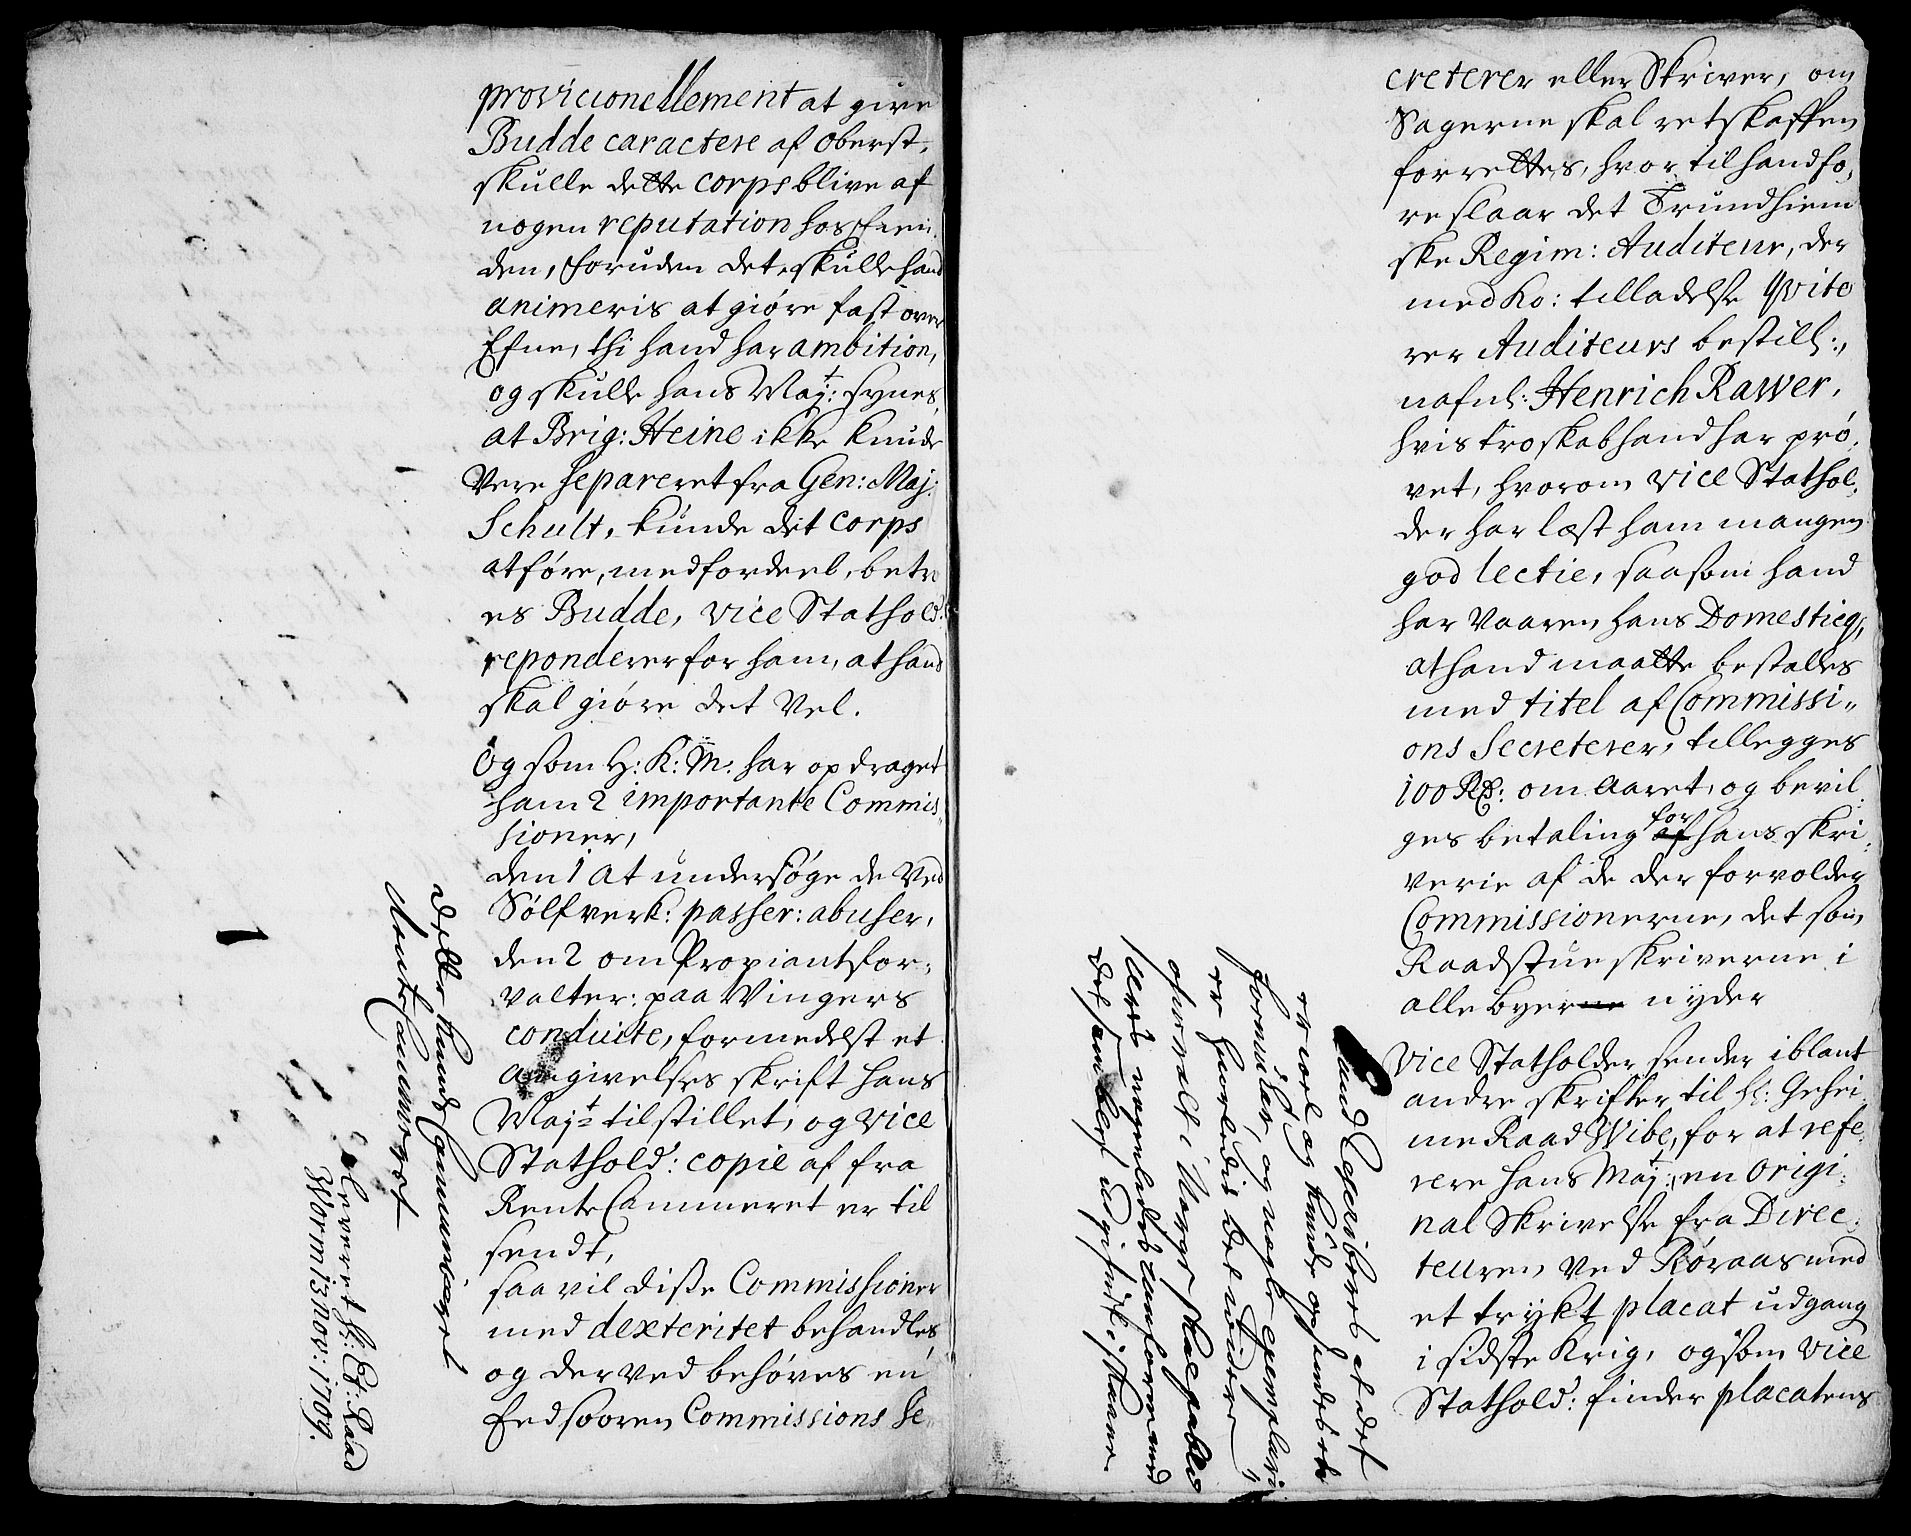 provicionellement at give
Budde caractere af Oberst,
skulle dette corps blive af
nogen reputation hos Fien-
den, foruden det, skulle hand
animeris at giöre fast over
Efne, thi hand har ambition,
og skulle hans Maj:t synes,
at Brig: Heine ikke kunde
Vere separeret fra Gen: Maj:
Schult, kunde dit corps
at före, med fordeel, betro
es Budde, vice Stathold:
reponderer for ham, at hand
skal giöre det Vel.
Og som H: K: M: har opdraget
ham 2 importante Commis-
sioner,
den 1 at undersöge de Ved
Sölfverk: passer: abuser,
den 2 om Proviantfor-
valter: paa Vingers
conduite, formedelst et
Angivelses skrift hans
Maj:t tilstillet, og vice
Stathold: copie af fra
Rente Cammeret er til
sendt,
saa vil disse Commissioner
med dexteritet behandles
og der ved behöves en
Eedsooren Commissions Se-
Rente Cammeret
Leveret H: Et: Raad
Worm 13 Nov: 1709.
creterer eller Skriver, om
Sagerne skal retskaffen
forrettes, hvor til hand fo-
reslaar det Trundhiem
ske Regim: Auditeur, der
med Ko: tilladelse qvite
rer Auditeurs bestill:,
nafnl: Henrich Rawer,
hvis troskab hand har prö-
vet, hvorom vice Stathol-
der har læst ham mangen
god lectie, saasom hand
har Vaaren hans Domesticq,
at hand maatte bestalles
med titel af Commissi-
ons Secreterer, tillegges
100 Rd: om Aaret, og bevil-
ges betaling for hans skri-
verie af de der forvolder
Commissionerne, det som
Raadstueskriverne i
alle byerne nyder
Vice Statholder sender iblant
andre skrifter til H: Gehei-
me Raad Wibe, for at refe-
rere hans Maj:t, en origi-
nal Skrivelse fra Direc-
teuren Ved Röraas med
et trykt placat udgang
i sidste Krig, og som vice
Stathold: finder placatens
er vel og kunde
formular, og nogle exemplari
er hvorledis det videre
ofver alt i Norge skal publi
ceris